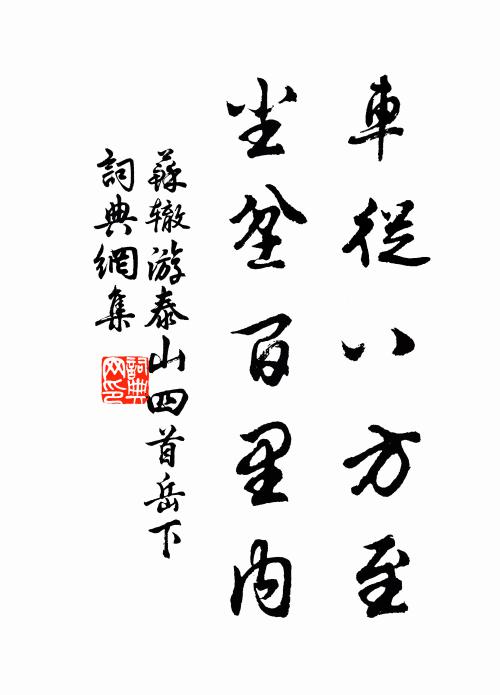 車從八方至
尘坌百里内
蘇辙游泰山四首岳下
詞典網集
詞典網印